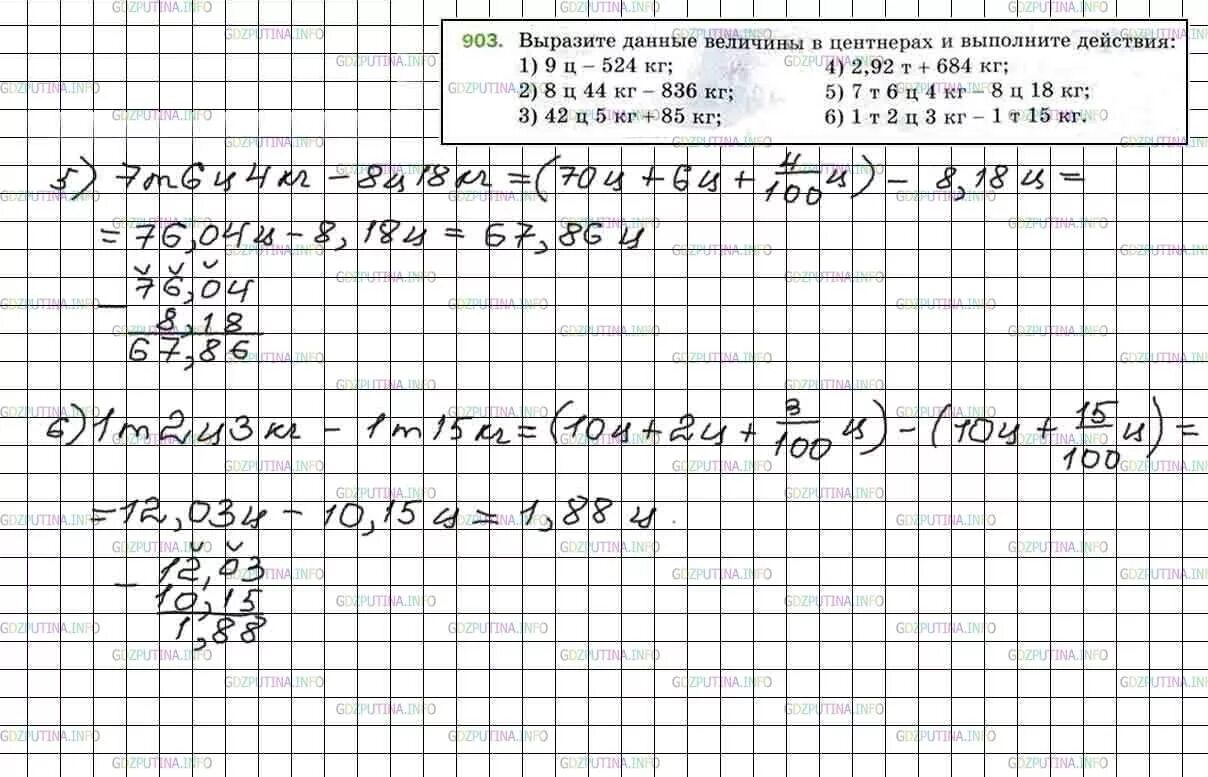 903. Выразите данные величины в центнерах и выполните действия:
1) 9 ц – 524 кг;
2) 8 ц 44 кг – 836 кг;
3) 42 ц 5 кг + 85 кг;
4) 2,92 т + 684 кг;
5) 7 т 6 ц 4 кг – 8 ц 18 кг;
6) 1 т 2 ц 3 кг – 1 т 15 кг.
5) 7т6ц4кг – 8ц18кг = (70ц + 6ц + 4/100 ц) – 8,18ц =
= 76,04ц – 8,18ц = 67,86 ц
– 76,04
8,18
67,86
6) 1т2ц3кг – 1т15кг = (10ц + 2ц + 3/100 ц) – (10ц + 15/100 ц) =
= 12,03ц – 10,15ц = 1,88 ц.
– 12,03
10,15
1,88
GDZPUTINA.INFO